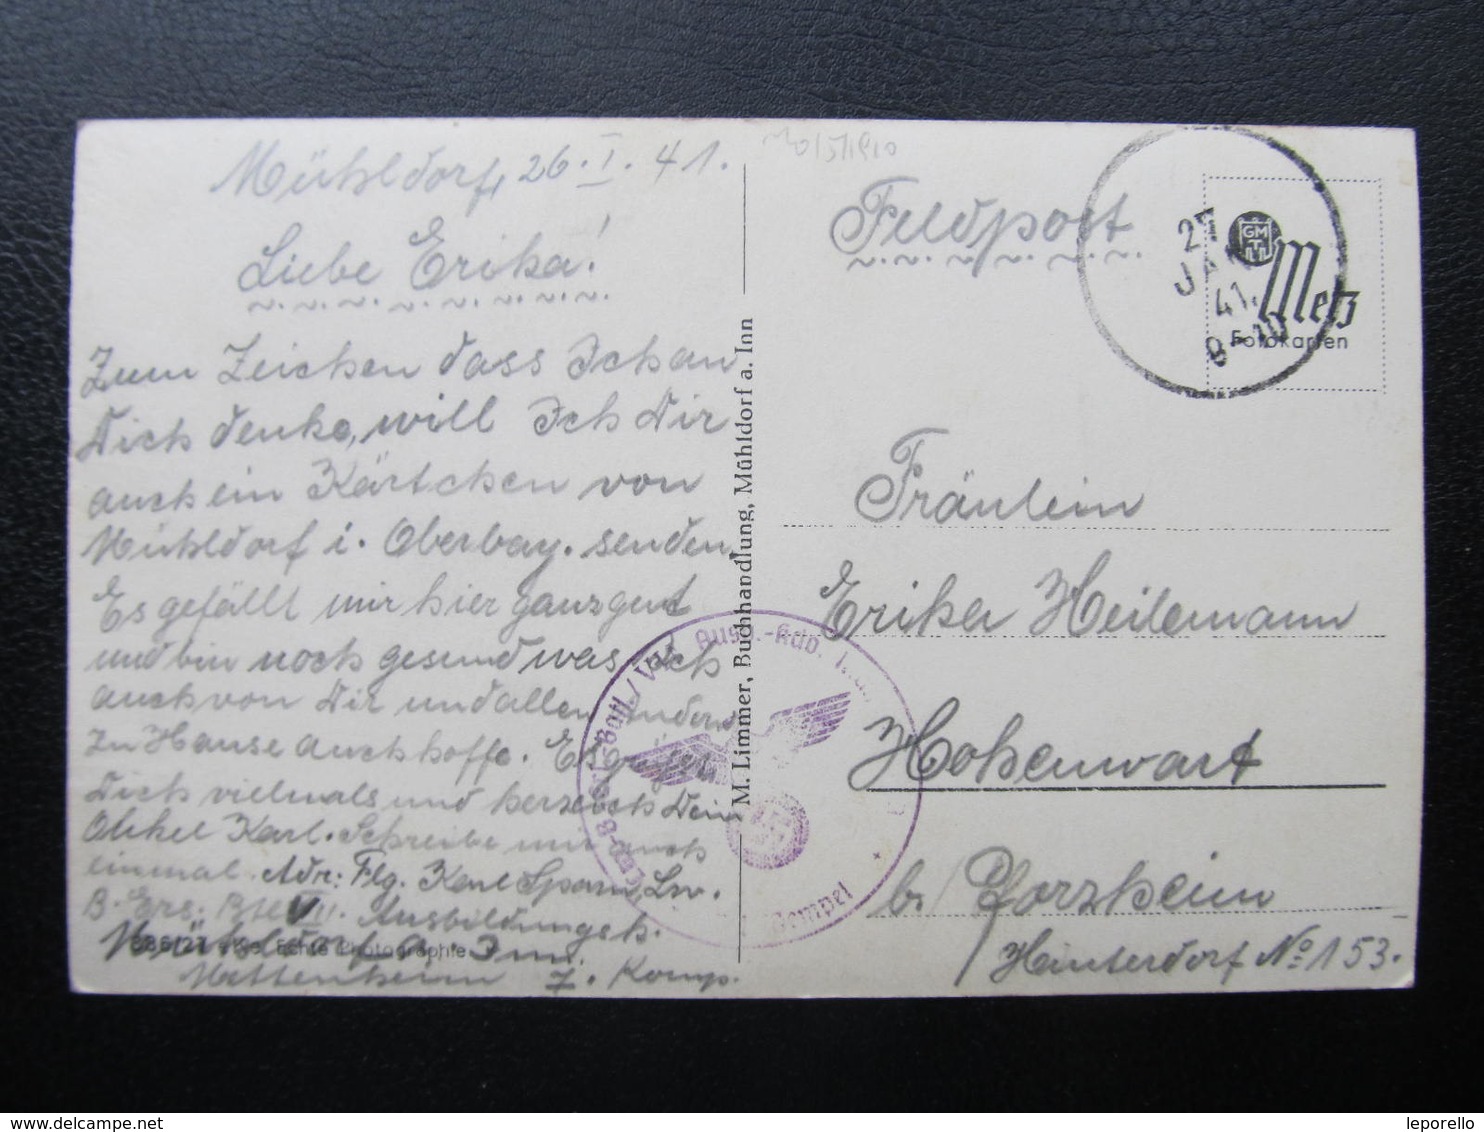 Mühldorf, 26. I. 41.
Liebe Erika!
Zum Zeichen dass Ich an
Dich denke, will Ich Dir
auch ein Kärtchen von
Mühldorf i. Oberbay. senden.
Es gefällt mir hier ganz gut
und bin noch gesund was ich
auch von Dir und allen andern
zu Hause auch hoffe. Es grüßt
Dich vielmals und herzlich Dein
Onkel Karl. Schreibe mir auch
einmal. Adr: Flg. Karl Lw.
B. Ers. Btl VII. Ausbildungsk.
Mühldorf a. Inn.
Mettenheim 7. Komp.
Echte Photographie
M. Limmer, Buchhandlung, Mühldorf a. Inn
Feldpost
27
JAN
41.
9-10
GM
Metz
Fotokarten
Fräulein
Erika Heilemann
Hohenwart
b. Pforzheim
Hinterdorf No 153.
leporello